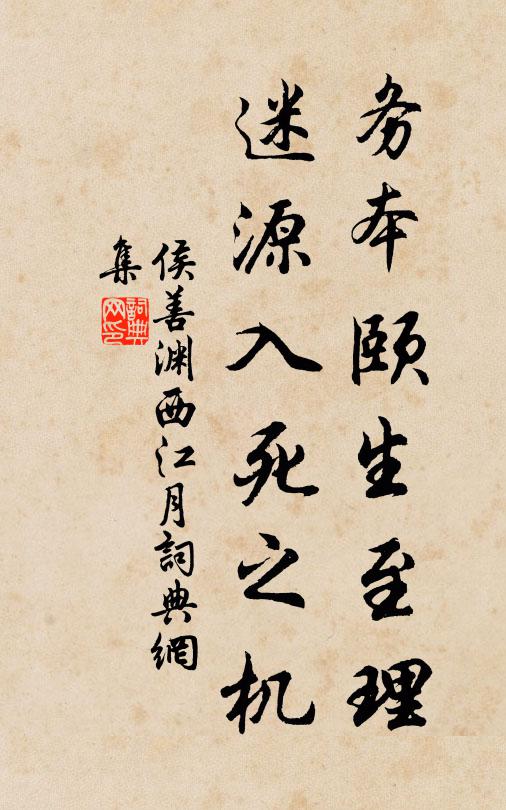 务本颐生至理
迷源入死之机
侯善渊西江月詞典網
集
詞典
网印